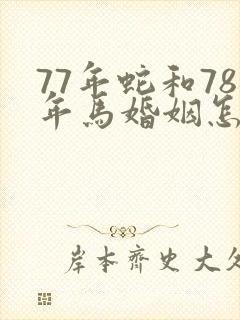 77年蛇和78
年马婚姻怎
岸本齐史大久